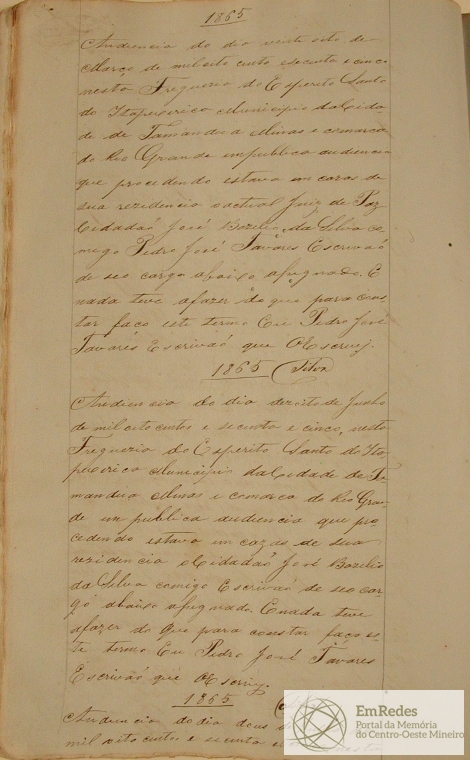 1865
Audiencia do dia vinte oito de
Março de mil oito centos secenta e cinc
nesta Freguezia do Esperito Santo
do Itapecerica Municipio da Cida-
de de Tamandua Minas e comarca
do Rio Grande em publica audiencia
que procedendo estava em cazas de
sua rezidencia o actual Juiz de Paz
Cidadaõ José Bazilio da Silva co-
migo Pedro José Tavares Escrivaõ
de seo cargo abaixo asignado. E
nada teve afazer do que para cons
tar faço este termo Eu Pedro José
Tavares Escrivaõ que o Escrevy.
1865 Silva
Audiencia do dia dezoito de Junho
de mil oito centos e secenta e cinco, nesta
Freguezia do Esperito Santo do Ita-
pecerica Municipio da Cidade de Ta
mandua Minas e comarca do Rio Gran-
de em publica audiencia que pro
cedendo estava em cazas de sua
rezidencia o Cidadaõ José Bazilio
da Silva comigo Escrivaõ de seo car-
go abaixo asignado. E nada teve
afazer do que para constar faço es-
te termo Eu Pedro José Tavares
Escrivaõ que o Escrevy.
1865
Audiencia do dia
mil oito centos e secenta e
EmRedes
Portal da Memória
do Centro-Oeste Mineiro